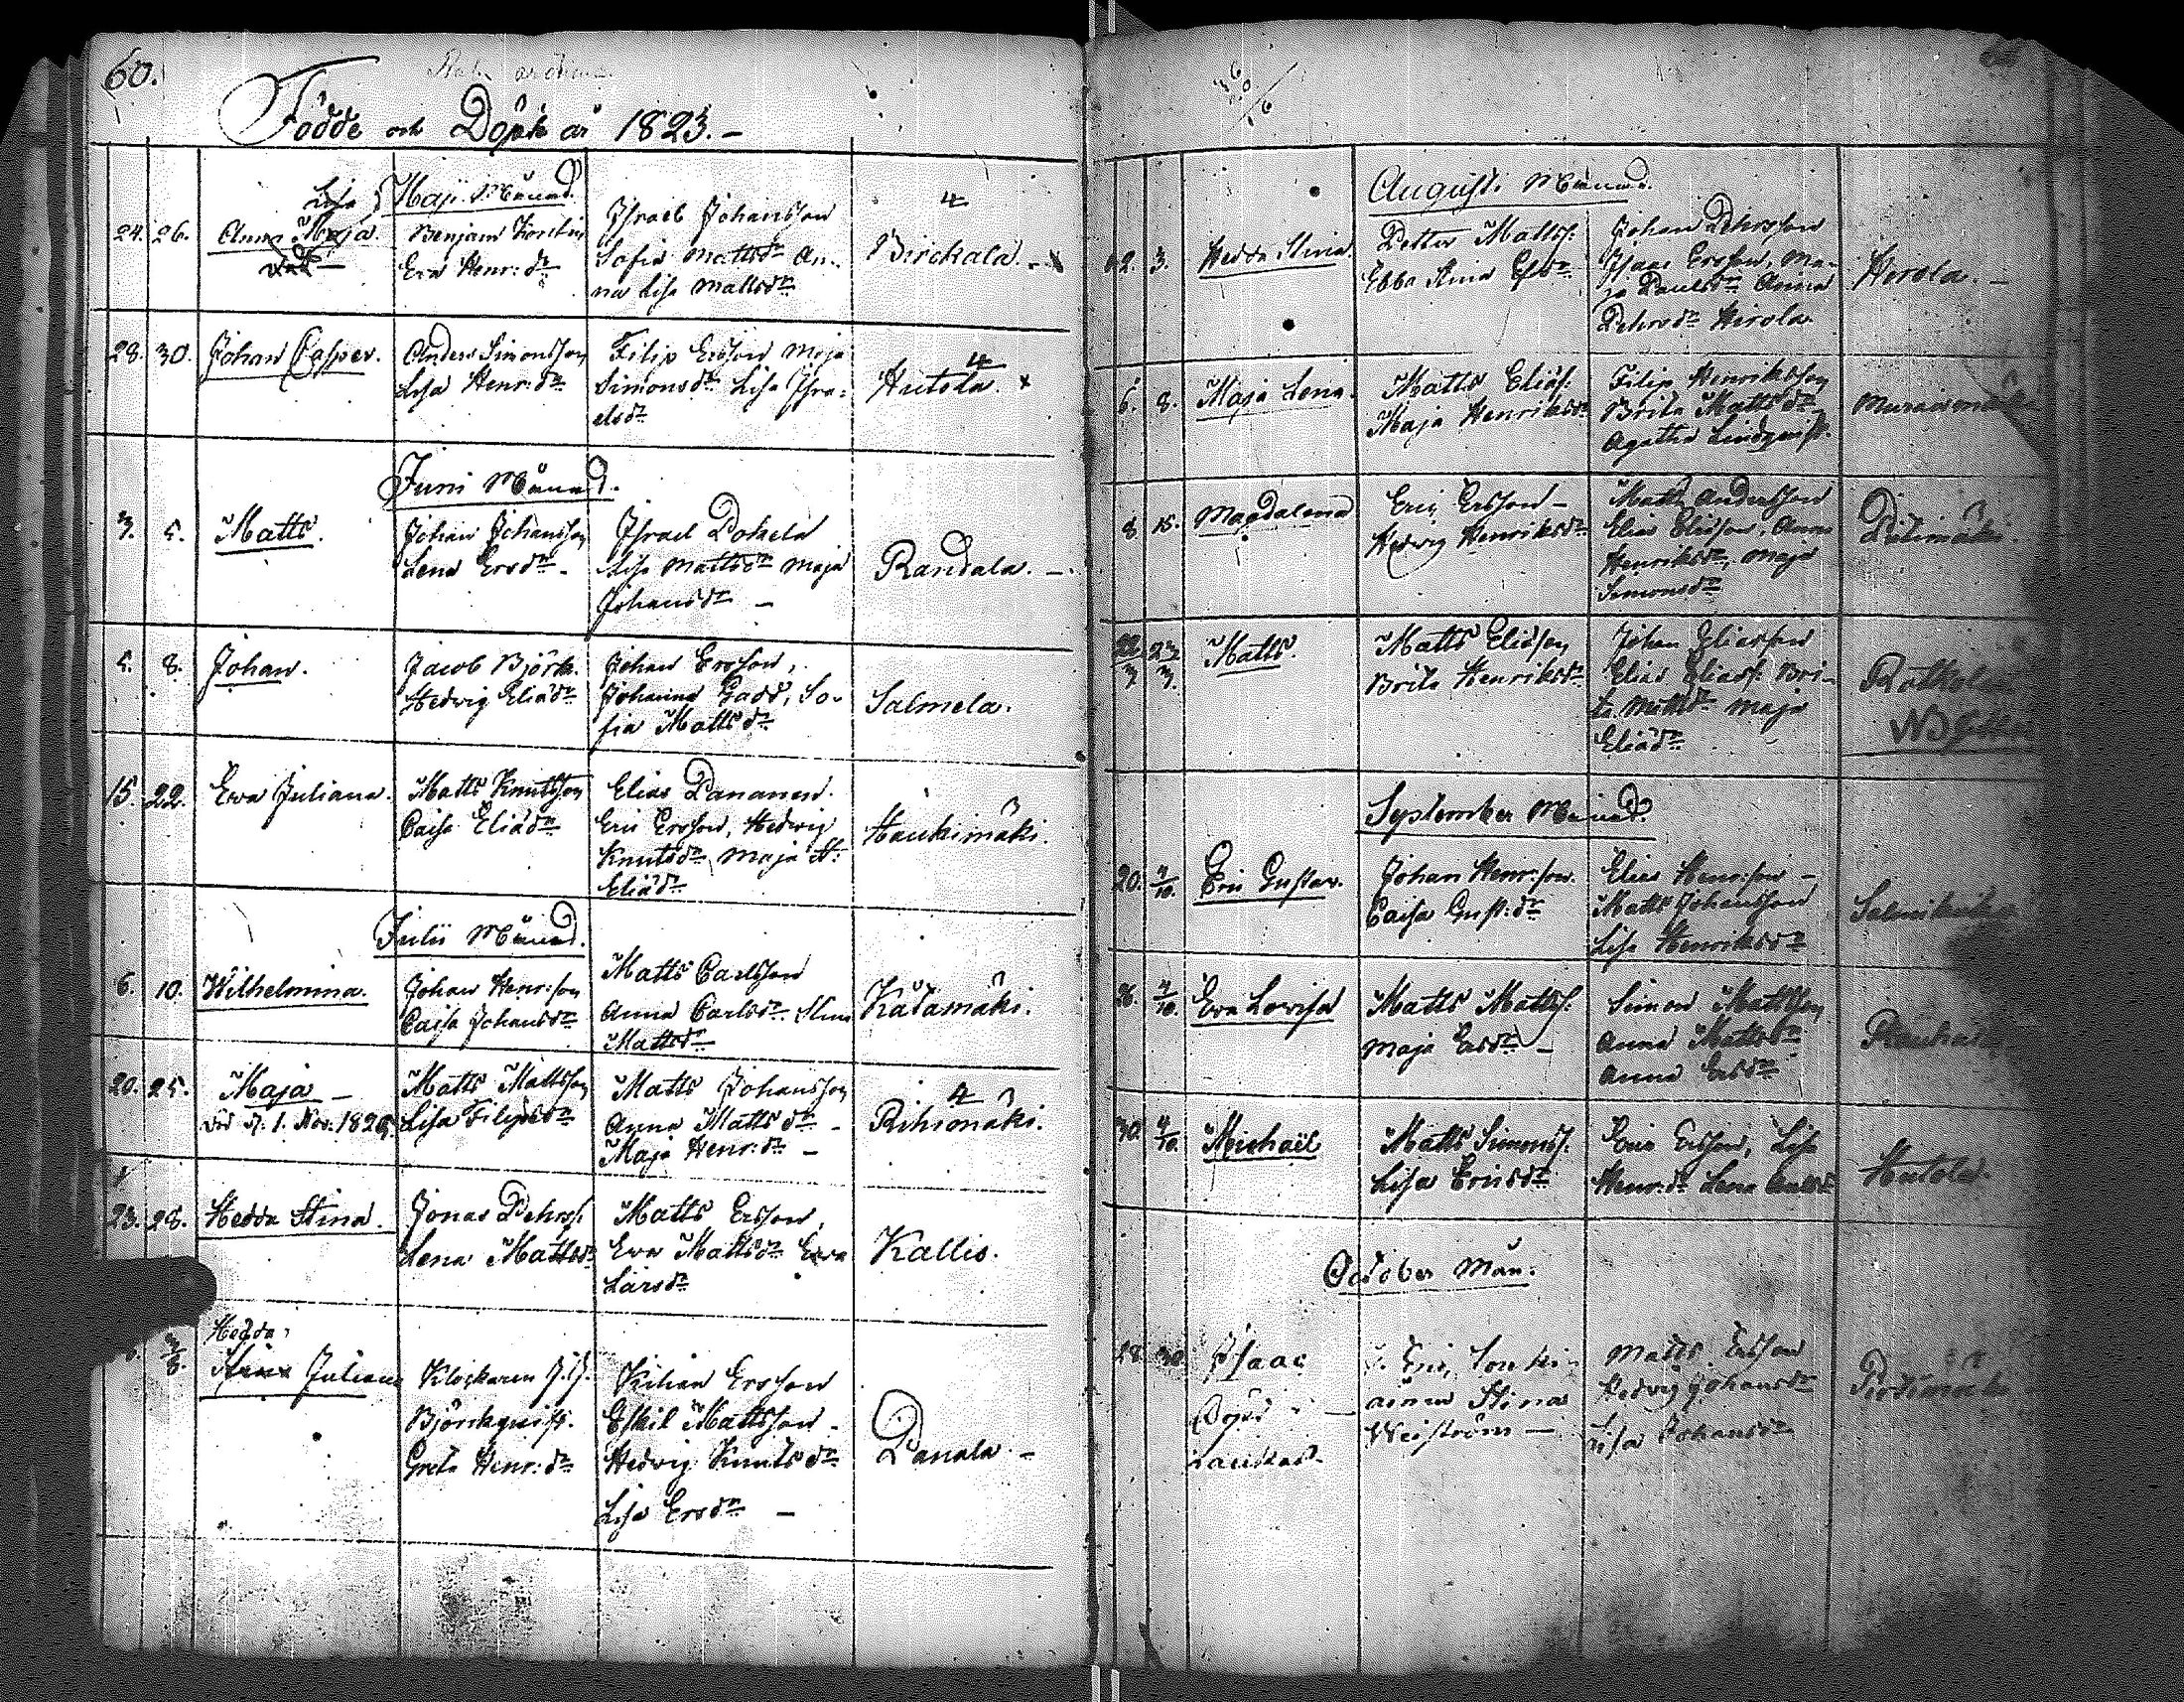 60.
Födde och Döpte år 1823.
Maji Månad.
Lisa
24. 26. Anna Maja
död
Benjam
Eva Henr: dr
Israel Johansson
Sofia Mattsdr An-
na Lisa Mattsdr
4
Birckala.
28. 30. Johan Casper.
Anders Simonsson
Lisa Henr: dr
Filip Ersson Maja
Simonsdr Lisa Isra-
elsdr
4
Hutola. x
Juni Månad.
3. 5. Matts.
Johan Johansson
Lena Ersdr
Israel Pokela
Lisa Mattsdr Maja
Johansdr
Randala.
5. 8. Johan.
Jacob Björk.
Hedvig Eliædr
Johan Ersson,
Johanna Gadd, So-
fia Mattsdr
Salmela.
15. 22. Eva Juliana.
Matts Knutsson
Caisa Eliædr
Elias Pananen.
Eric Ersson, Hedvig
Knutsdr Maja
Eliædr
Haukimäki.
Julii Månad.
6. 10. Wilhelmina.
Johan Henr:son
Caisa Johansdr
Matts Carlsson
Anna Carlsdr Stina
Mattsdr
Katamäki.
20. 25. Maja
död d. 1. Nov. 1825.
Matts Mattsson
Lisa Filipsdr
Matts Johansson
Anna Mattsdr
Maja Henr: dr
4
Rihiomäki.
23. 28. Hedda Stina.
Jonas Pehrss.
Lena Mattsdr
Matts Ersson,
Eva Mattsdr Eva
Larsdr
Kallio.
Hedda
3/8. Stina Juliana
Klockaren J. J.
Björckquist.
Greta Henr: dr
Kilian Ersson
Eskil Mattsson
Hedvig Knutsdr
Lisa Ersdr
Panala
Augusti Månad.
2. 3. Hedda Stina.
Petter Mattss:
Ebba Stina
Johan Pehrsson
Isaac Ersson, Ma-
ja Paulsdr Anna
Pehrsdr Hirola
Herola.
6. 8. Maja Lena.
Matts Eliæss:
Maja Henriksdr
Filip Henriksson
Brita Mattsdr
Agatha Lindqvist.
8 15. Magdalena
Eric Ersson
Hedvig Henriksdr
Matts Andersson
Elias Eliasson, Anna
Henriksdr, Maja
Simonsdr
Pitimäki.
Matts.
Matts Eliæson
Brita Henriksdr
Johan Eliasson
Elias Eliass: Bri-
ta Mattsdr Maja
Eliædr
September Månad.
20. Eric Gustav.
Johan Henr:son.
Caisa Gust: dr
Elias Henr:son
Matts Johansson
Lisa Henriksdr
26. 4/10. Eva Lovisa
Matts Mattss:
Maja Ersdr
Simon Mattsson
Anna Mattsdr
Anna Ersdr
30. 4/10. Michaël
Matts Simonss:
Lisa Ericsdr
Eric Ersson, Lisa
Henr: dr Lena
Hutola.
October Mån:
28. 30. Isaac
Eric,
Stina
Matts Ersson
Hedvig Johansdr
Lisa Johansdr